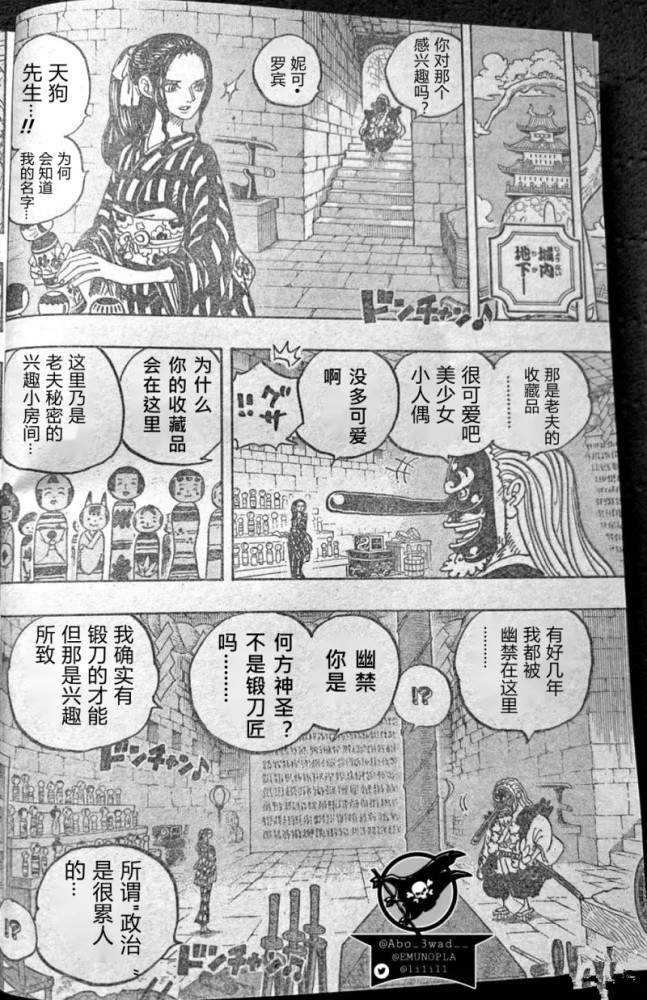 城内
地下
你对那个
感兴趣吗？
妮可·
罗宾
天狗
先生…!!
为何
会知道
我的名字…
ドンチャン♪
那是老夫的
收藏品
………
很可爱吧
美少女
小人偶
没多可爱
啊
为什么
你的收藏品
会在这里
这里乃是
老夫秘密的
兴趣小房间…
有好几年
我都被
幽禁在这里
………
!?
幽禁
你是
何方神圣？
不是锻刀匠
吗………
我确实有
锻刀的才能
但那是兴趣
所致
ドンチャン♪
所谓"政治"
是很累人
的…
!?
ドンチャン♪
@Abo_3wad__
@EMUNOPLA
@lilill